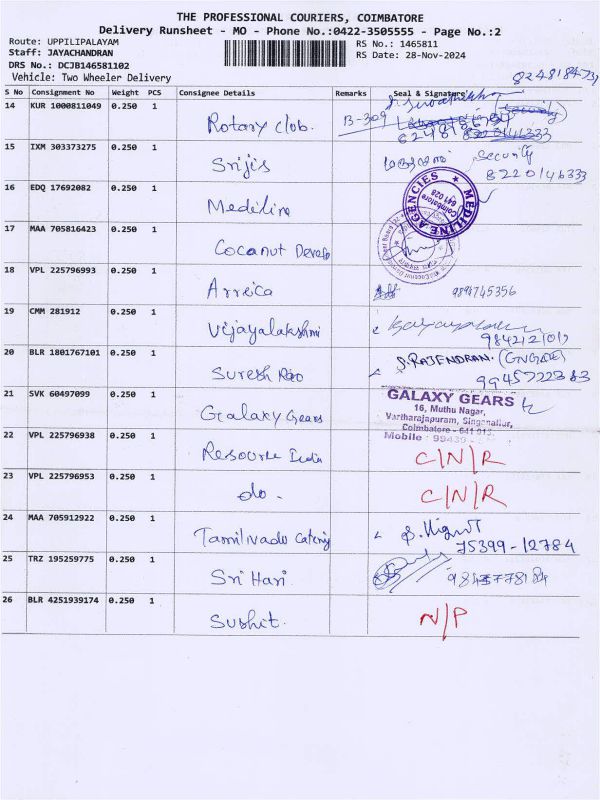 THE PROFESSIONAL COURIERS, COIMBATORE
Delivery Runsheet - MO - Phone No.:0422-3505555 - Page No.:2
Route: UPPILIPALAYAM RS No.: 1465811
Staff: JAYACHANDRAN RS Date: 28-Nov-2024
DRS No.: DCJB146581102
Vehicle: Two Wheeler Delivery
S No Consignment No Weight PCS Consignee Details Remarks Seal & Signature
14 KUR 1000811049 0.250 1 Rotary Club. B-309
15 IXM 303373275 0.250 1 Srijis Security
8220146333
16 EDQ 17692082 0.250 1 Medeline
MEDILINE AGENCIES
Coimbatore
641 028
17 MAA 705816423 0.250 1 Coconut Develo
18 VPL 225796993 0.250 1 Arreica 9894745356
19 CMM 281912 0.250 1 Vijayalakshmi
20 BLR 1801767101 0.250 1 Suresh Rao S.RAJENDRAN.
21 SVK 60497099 0.250 1 Galaxy Gears
GALAXY GEARS
16, Muthu Nagar,
Vartharajapuram, Singanallur,
Coimbatore - 641 015.
Mobile : 99439
22 VPL 225796938 0.250 1 Resource India C/N/R
23 VPL 225796953 0.250 1 do. C/N/R
24 MAA 705912922 0.250 1 Tamilnadu Catering
75399-12784
25 TRZ 195259775 0.250 1 Sri Hari.
26 BLR 4251939174 0.250 1 Sushit. N/P